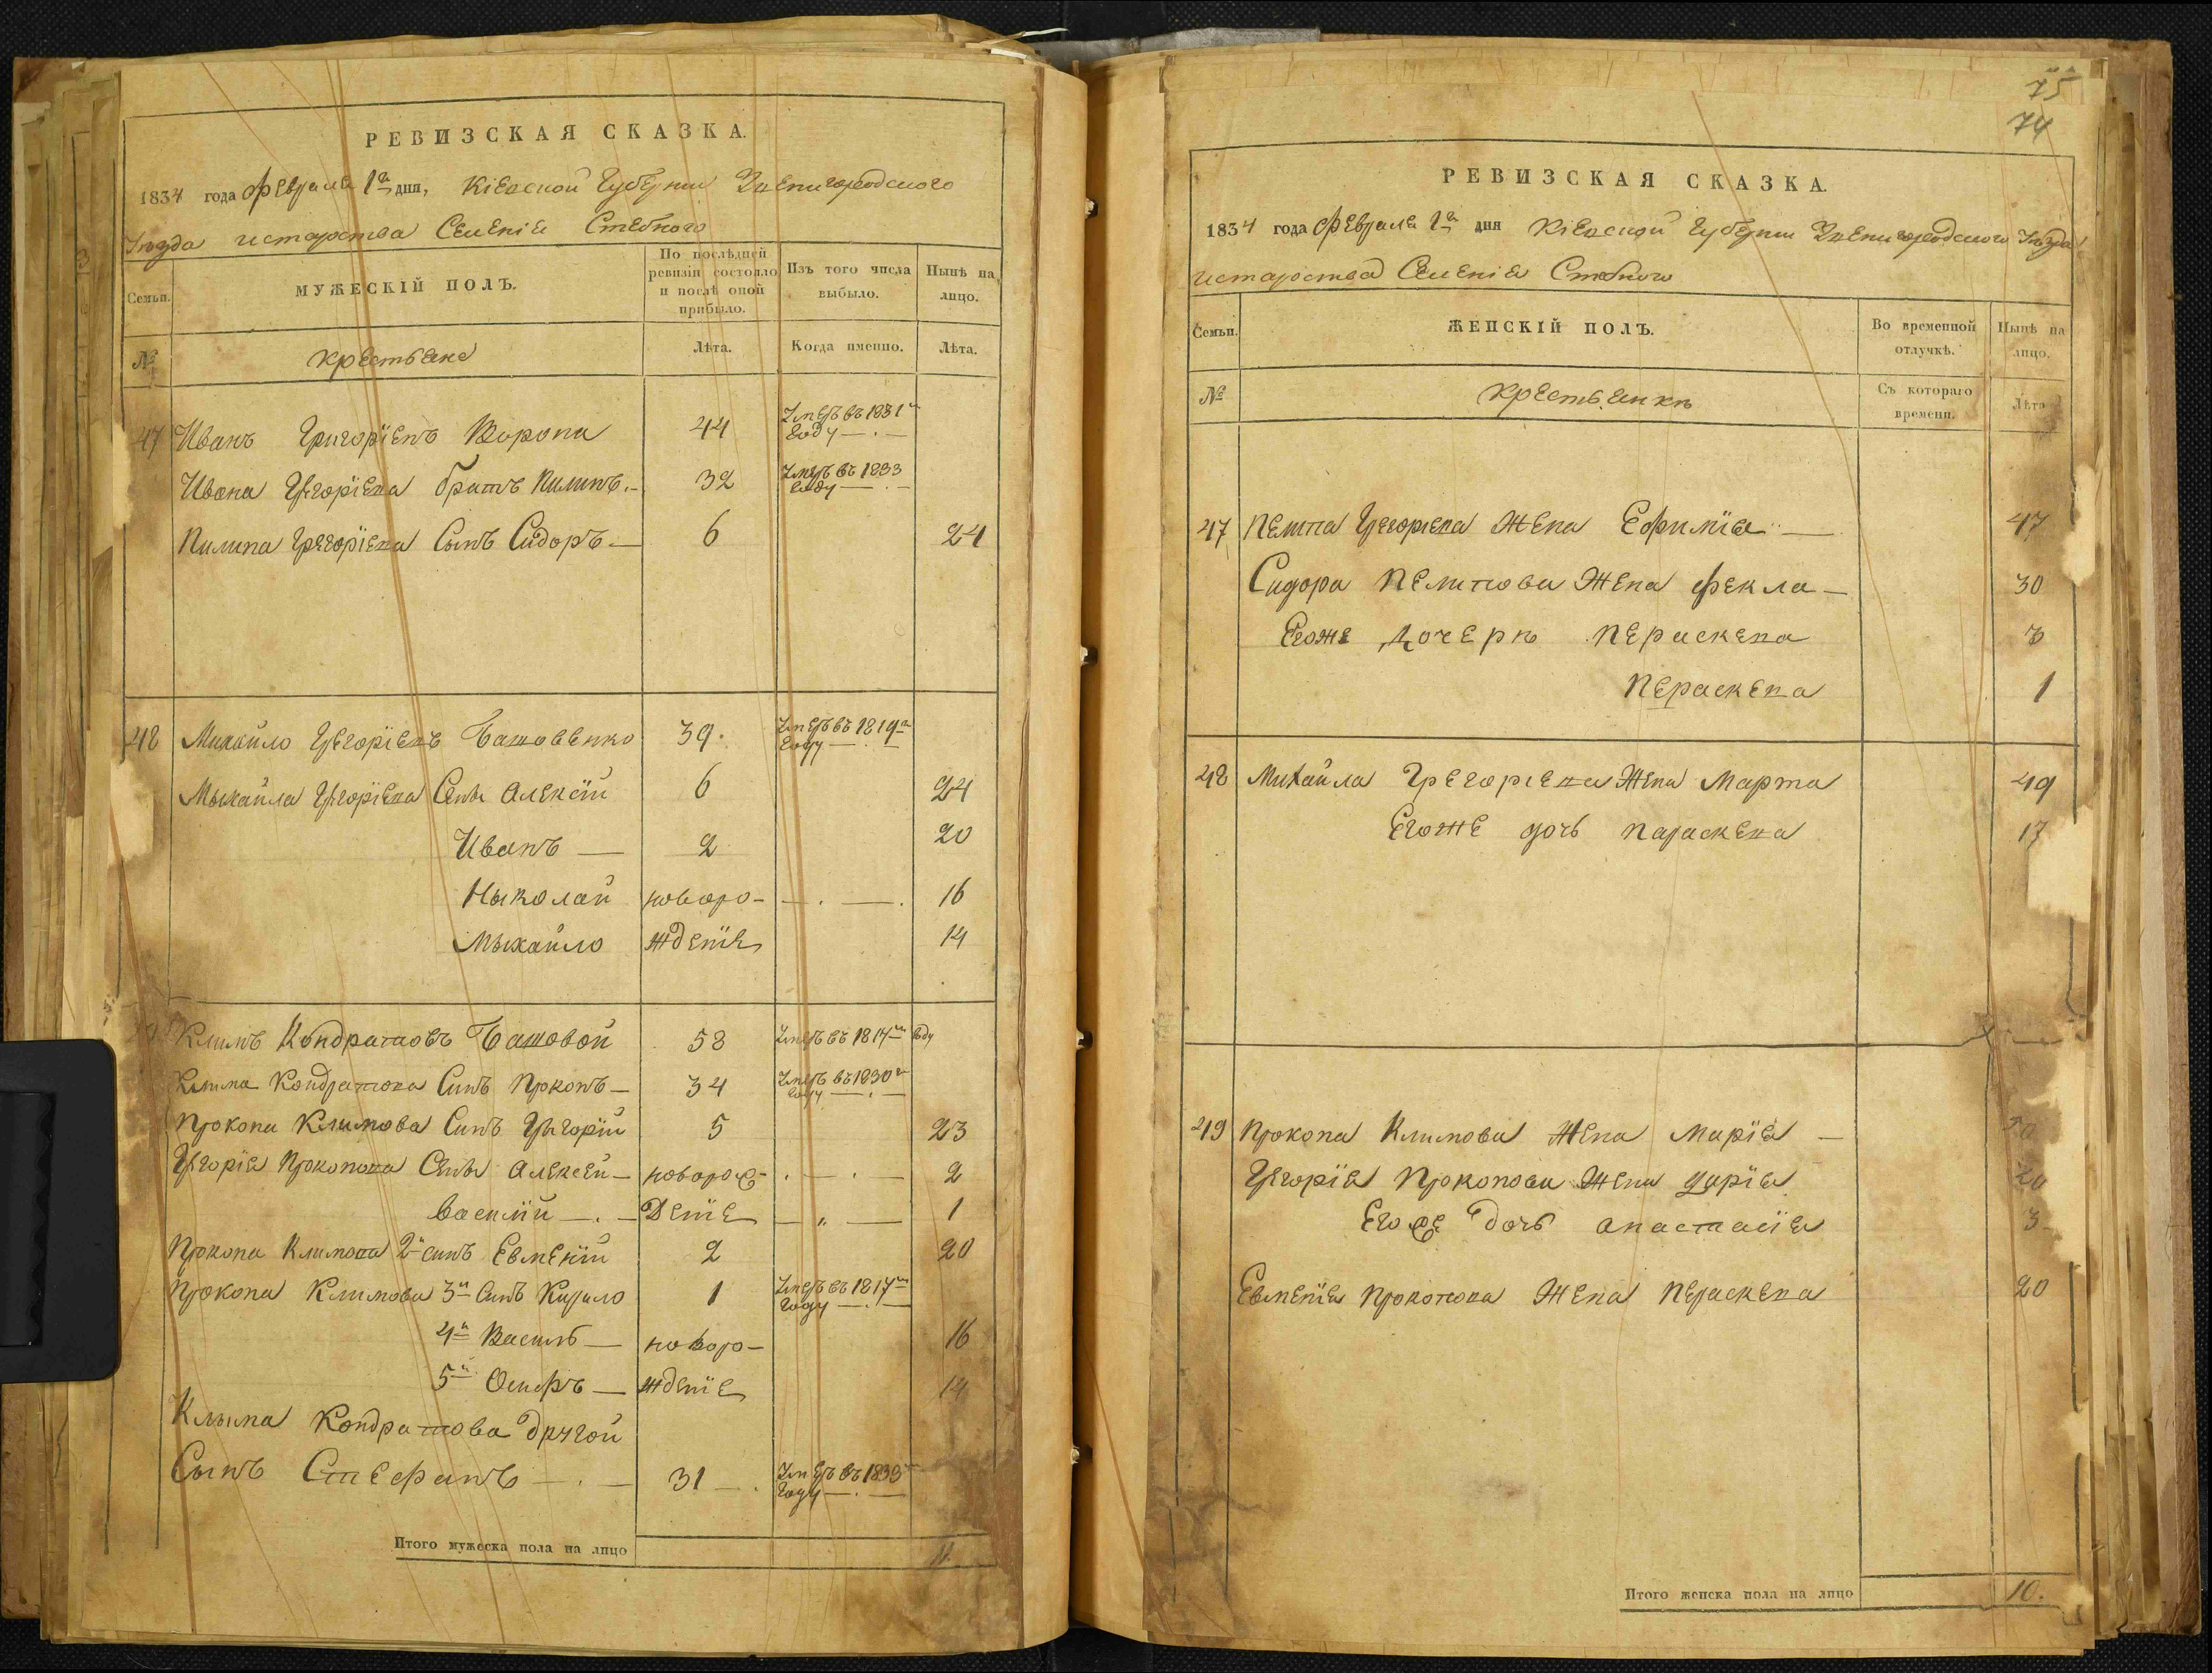 РЕВИЗСКАЯ СКАЗКА.
1834 года Февраля 1а дня, Кіевской Губерніи Звенигородского
Уезда истароства Селенія Стебного
Семьи. МУЖЕСКІЙ ПОЛЪ. По послѣдней ревизіи состояло и послѣ оной прибыло. Изъ того числа выбыло. Нынѣ на лицо.
№ крестьяне Лѣта. Когда именно. Лѣта.
47 Иванъ Григоріевъ Ворона 44 Умеръ въ 1831м Году
Ивана Григоріева братъ Пилипъ 32 Умеръ въ 1833 Году
Пилипа Григоріева Сынъ Сидоръ 6 24
48 Михайло Григоріевъ 39. Умеръ въ 1819м Году
Мыхайла Григоріева Сыны Алексій 6 24
Иванъ 2 20
Ныколай новоро- 16
Мыхайло жденіе 14
Климъ Кондратовъ 58 Умеръ въ 1817м Году
Клима Кондратова Синъ Прокопъ 34 Умеръ въ 1830м Году
Прокопа Климова Синъ Григорій 5 23
Григорія Прокопова Сыны Алексей новорож- 2
Василій деніе 1
Прокопа Климова 2й синъ Евменій 2 20
Прокопа Климова 3й Синъ Кирило 1 Умеръ въ 1817м Году
4й Василь новоро- 16
5й Осифъ жденіе 14
Клыма Кондратова другой
Сынъ Стефанъ 31 Умеръ въ 1833 Году
Итого мужеска пола на лицо 11.
75
74
РЕВИЗСКАЯ СКАЗКА.
1834 года Февраля 1а дня Кіевской Губерніи Звенигородского Уезда
истароства Селенія Стебного
Семьи. ЖЕНСКІЙ ПОЛЪ. Во временной отлучкѣ. Нынѣ на лицо.
№ крестьянкѣ Съ котораго времени. Лѣта
47 Пелипа Григоріева Жена Ефимія 47
Сидора Пелипова Жена Фекла 30
Егоже дочерѣ Пераскева 3
Пераскева 1
48 Михайла Грегоріева Жена Марта 49
Егоже дочь Параскева 17
49 Прокопа Климова Жена Марія
Григорія Прокопова Жена Дарія 20
Егоже дочь Анастасія 3
Евменія Прокопова Жена Пераскева 20
Итого женска пола на лицо 10.